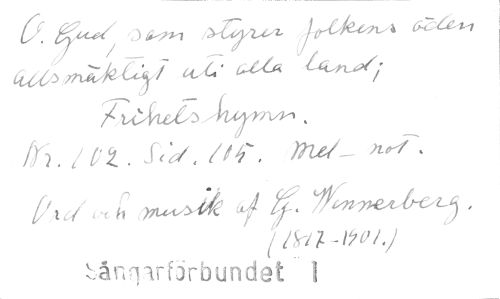 O. Gud, som styrer folkens öden
allsmäktigt uti alla land;
Frihetshymn.
Nr. 102. Sid. 105. Mel - not.
Ord och musik af G. Wennerberg.
(1817-1901.)
Sångarförbundet 1